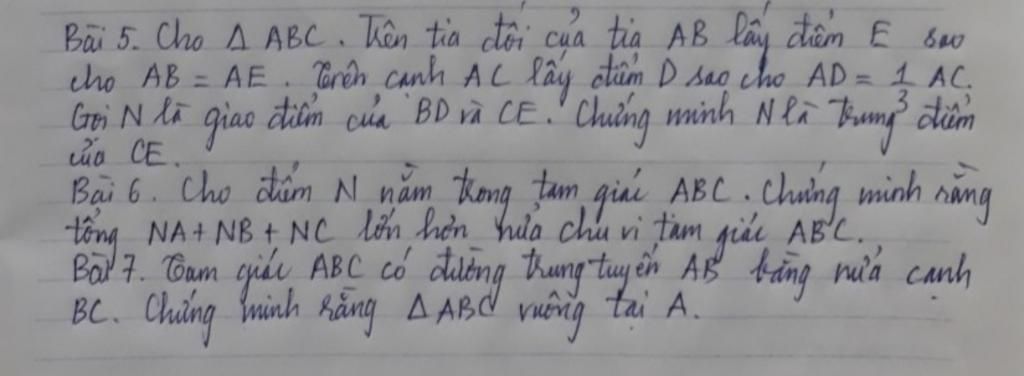 Bài 5. Cho Δ ABC. Trên tia đối của tia AB lấy điểm E sao
cho AB = AE. Trên cạnh AC lấy điểm D sao cho AD = 1/3 AC.
Gọi N là giao điểm của BD và CE. Chứng minh N là trung điểm
của CE.
Bài 6. Cho điểm N nằm trong tam giác ABC. Chứng minh rằng
tổng NA + NB + NC lớn hơn nửa chu vi tam giác ABC.
Bài 7. Tam giác ABC có đường trung tuyến AB bằng nửa cạnh
BC. Chứng minh rằng Δ ABC vuông tại A.